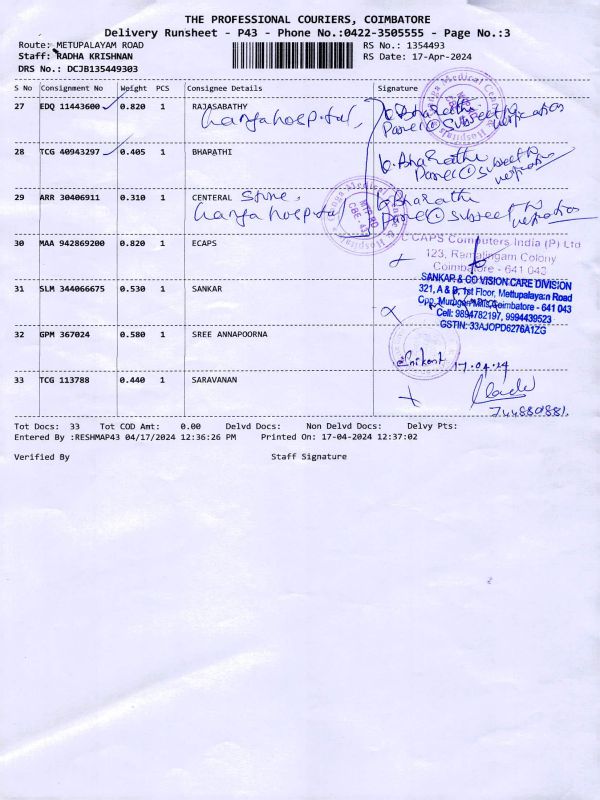 THE PROFESSIONAL COURIERS, COIMBATORE
Delivery Runsheet - P43 - Phone No.:0422-3505555 - Page No.:3
Route: METUPALAYAM ROAD RS No.: 1354493
Staff: RADHA KRISHNAN RS Date: 17-Apr-2024
DRS No.: DCJB135449303
S No Consignment No Weight PCS Consignee Details Signature
27 EDQ 11443600 0.820 1 RAJASABATHY
Ganga hospital, G. Bharathi
subject to verification
28 TCG 40943297 0.405 1 BHARATHI
G. Bharathi
subject to
verification
29 ARR 30406911 0.310 1 CENTERAL Store, G. Bharathi
Ganga hospital subject to verification
30 MAA 942869200 0.820 1 ECAPS
CAPS Computers India (P) Ltd
123, Ramalingam Colony
Coimbatore - 641 043
31 SLM 344066675 0.530 1 SANKAR
SANKAR & CO VISION CARE DIVISION
321, A & B, 1st Floor, Mettupalayam Road
Opp. Murugan Mills, Coimbatore - 641 043
Cell: 9894782197, 9994439523
GSTIN: 33AJOPD6276A1ZG
32 GPM 367024 0.580 1 SREE ANNAPOORNA
17.04.24
33 TCG 113788 0.440 1 SARAVANAN
Tot Docs: 33 Tot COD Amt: 0.00 Delvd Docs: Non Delvd Docs: Delvy Pts:
Entered By :RESHMAP43 04/17/2024 12:36:26 PM Printed On: 17-04-2024 12:37:02
Verified By Staff Signature